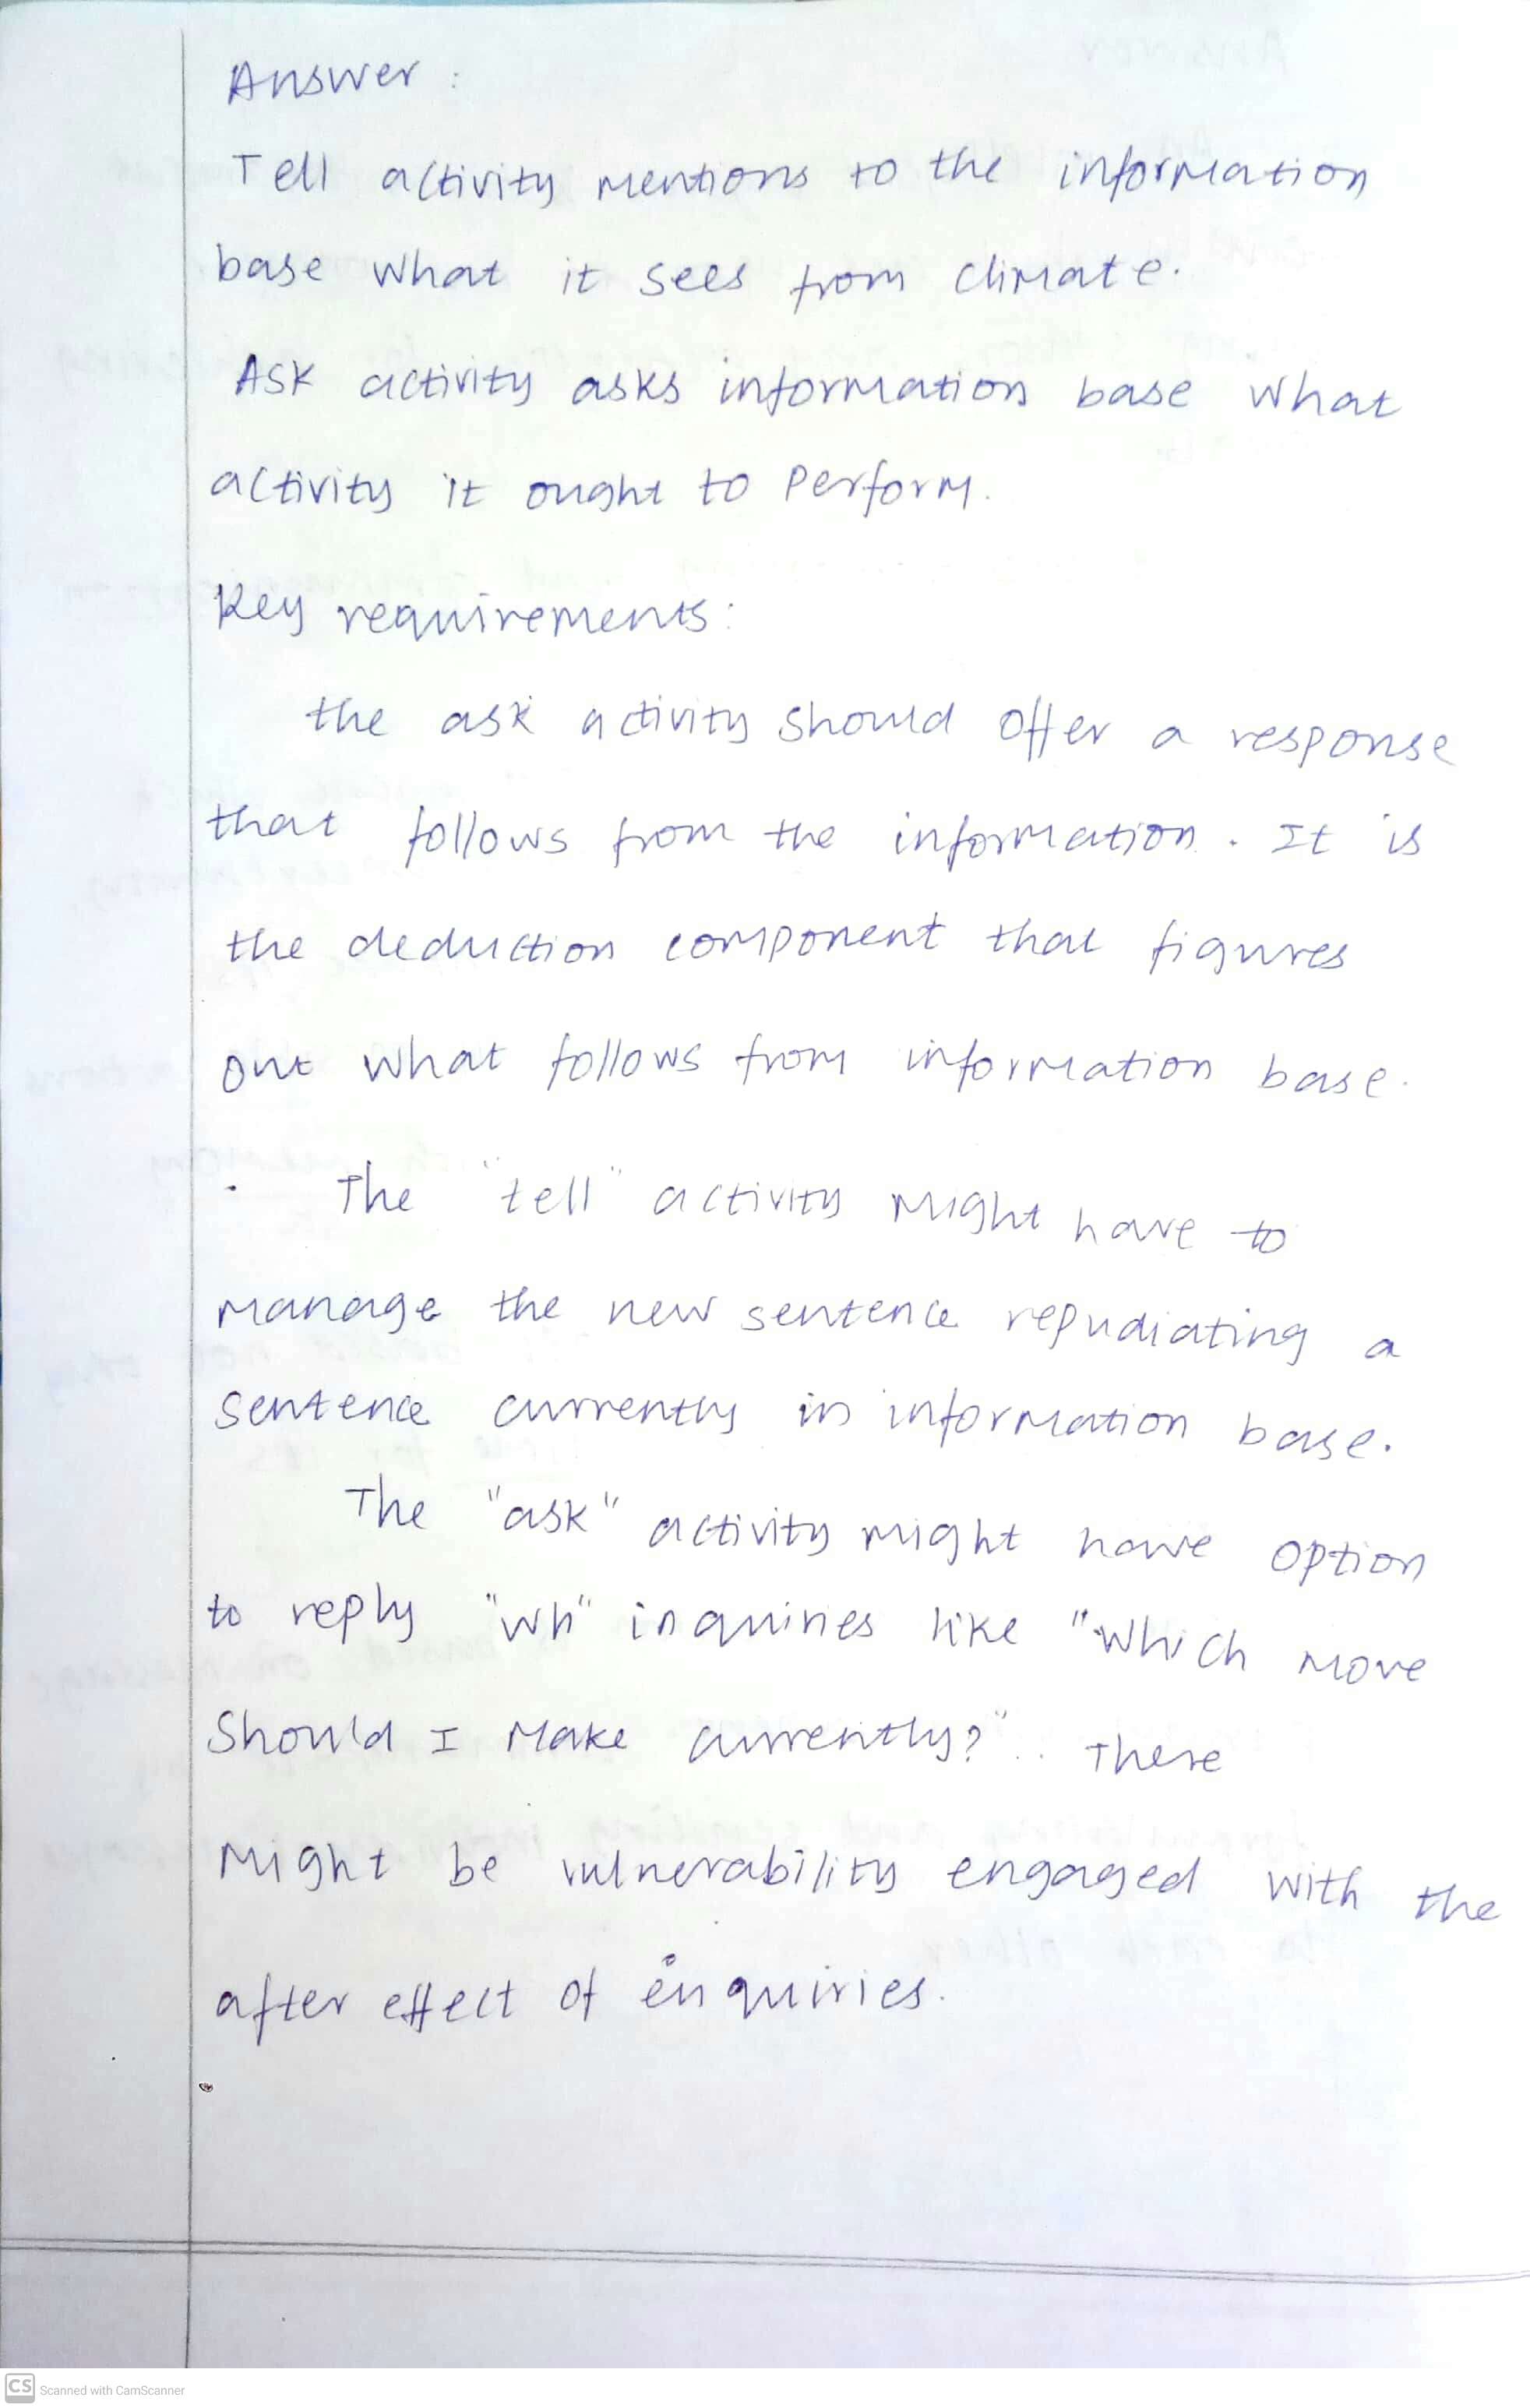 Answer :
Tell activity mentions to the information
base what it sees from climate.
Ask activity asks information base what
activity it ought to perform.
Key requirements:
the ask activity should offer a response
that follows from the information. It is
the deduction component that figures
out what follows from information base.
The "tell" activity might have to
manage the new sentence repudiating a
sentence currently in information base.
The "ask" activity might have option
to reply "wh" inquiries like "which move
should I make currently?".. There
Might be vulnerability engaged with the
after effect of enquiries.
CS Scanned with CamScanner